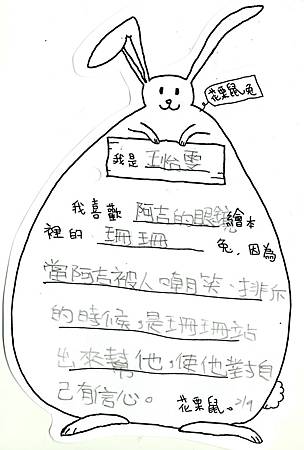 花栗鼠兔
我是 王怡雯
我喜歡 阿吉的眼鏡 繪本
裡的 珊珊 兔,因為
當阿吉被人嘲笑、排斥
的時候,是珊珊站
出來幫他,使他對自
己有信心。 花栗鼠。2/9